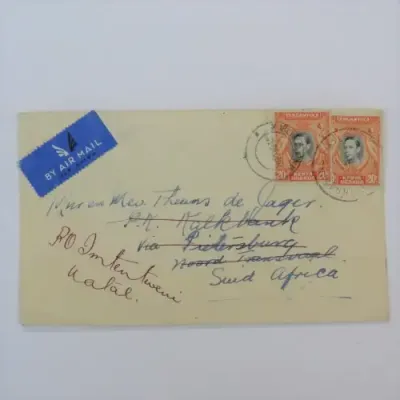 BY AIR MAIL
TANGANYIKA
KENYA
UGANDA
20c
TANGANYIKA
KENYA
UGANDA
20c
Mnr en Mev Theuns de Jager.
P.K. Kalkbank
via Pietersburg
Noord Transvaal
Suid Africa
PO Imtentweni
Natal.